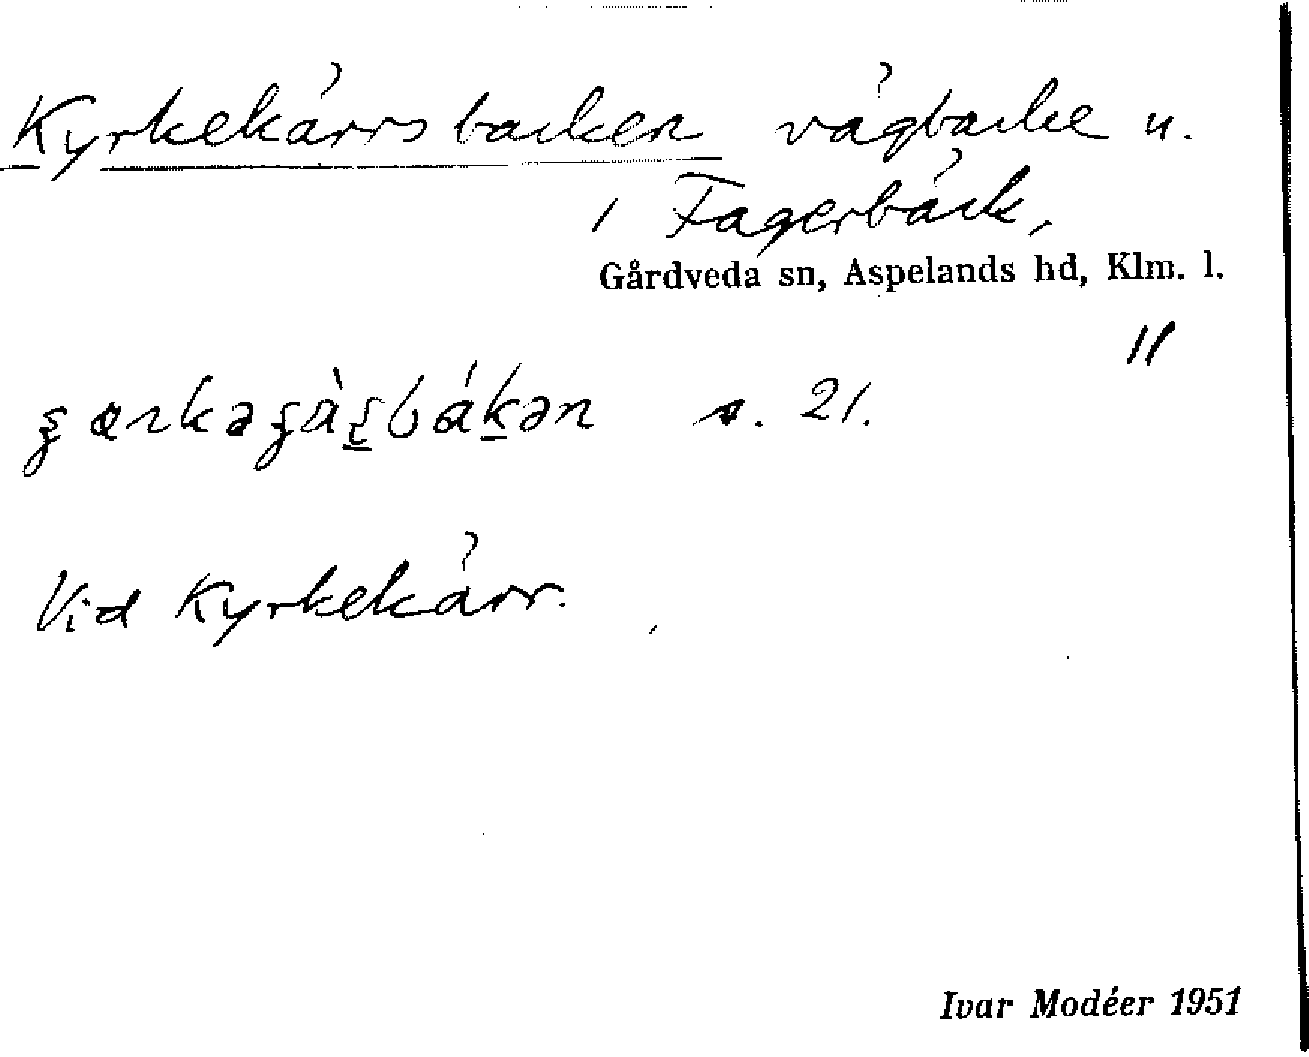 Kyrkekärrsbacken vägbacke n.
i Fagerbäck,
Gårdveda sn, Aspelands hd, Klm. l.
11
s. 21.
Vid Kyrkekärr.
Ivar Modéer 1951